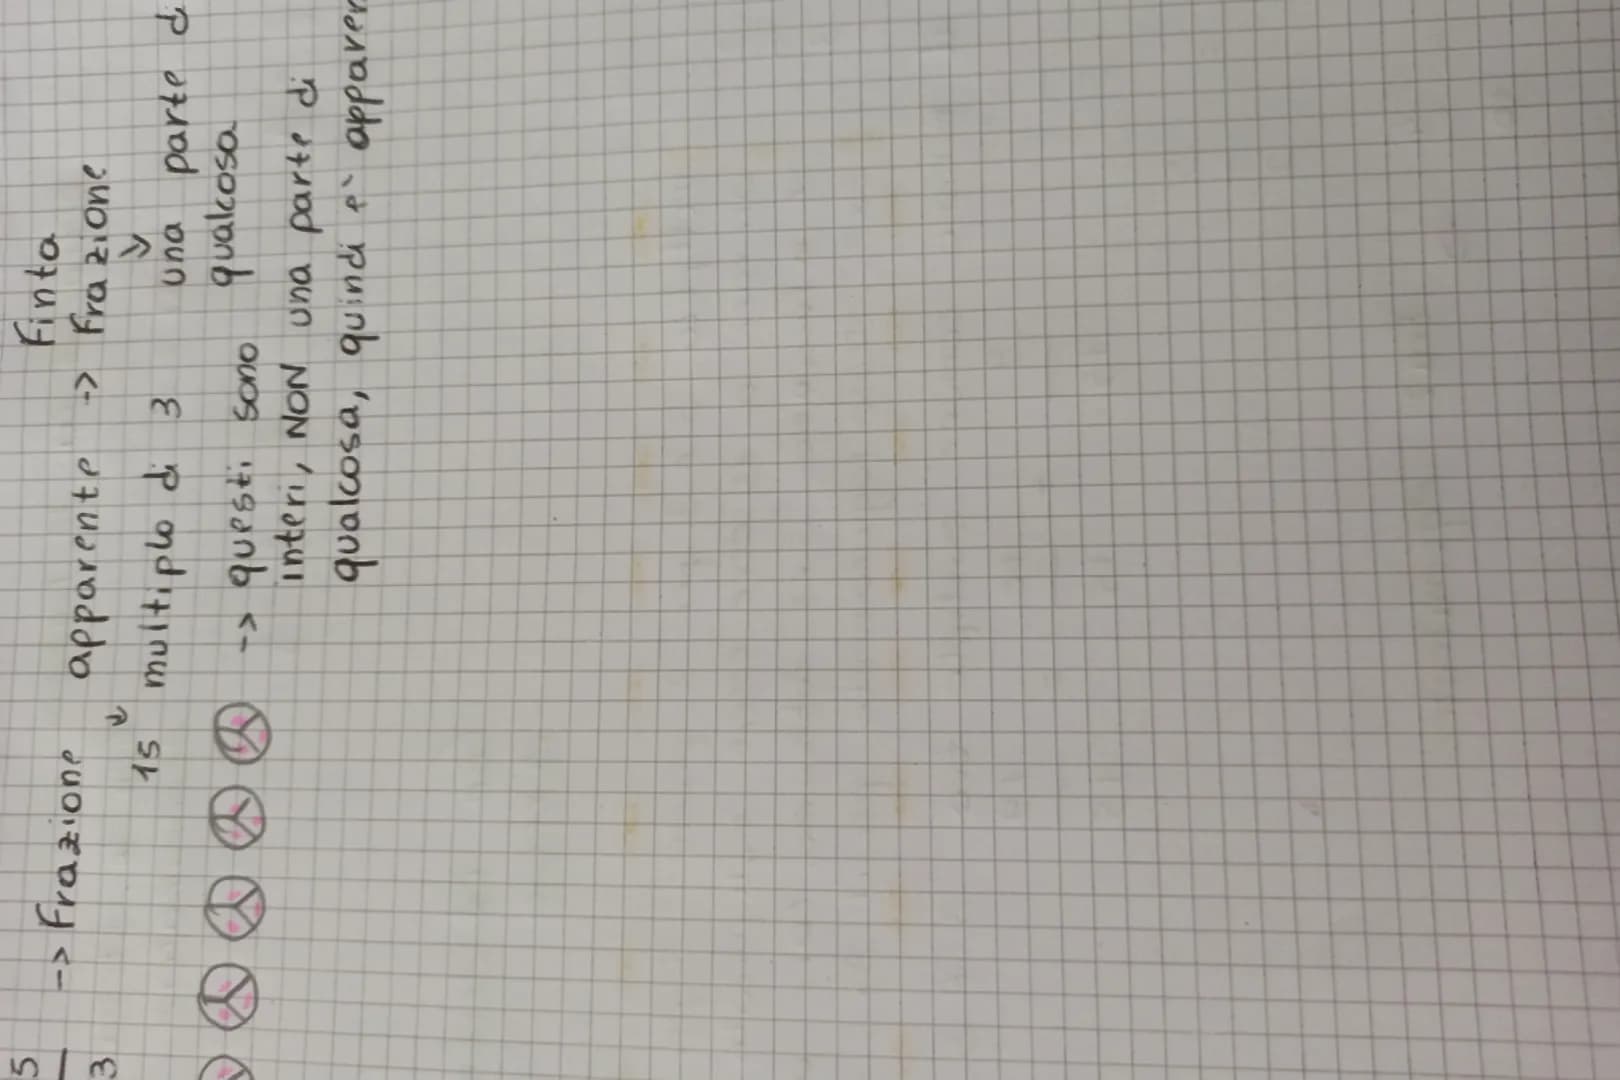 Finta
5 -> Frazione apparente -> Frazione
3
15 multiplo di 3 una parte di
qualcosa
-> questi sono
interi, NON una parte di
qualcosa, quindi è apparen